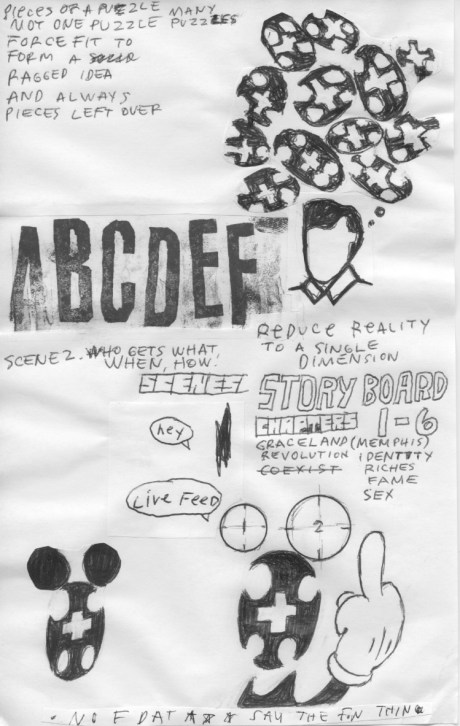 PIECES OF A PUZZLE MANY
NOT ONE PUZZLE PUZZLES
FORCE FIT TO
FORM A
RAGGED IDEA
AND ALWAYS
PIECES LEFT OVER
ABCDEF
REDUCE REALITY
TO A SINGLE
DIMENSION
SCENE 2. WHO GETS WHAT,
WHEN, HOW.
SCENES
STORY BOARD
CHAPTERS 1-6
GRACELAND (MEMPHIS)
REVOLUTION IDENTITY
COEXIST RICHES
FAME
SEX
hey
LIVE FEED
1
2
NO F DAT SAY THE F'N THING